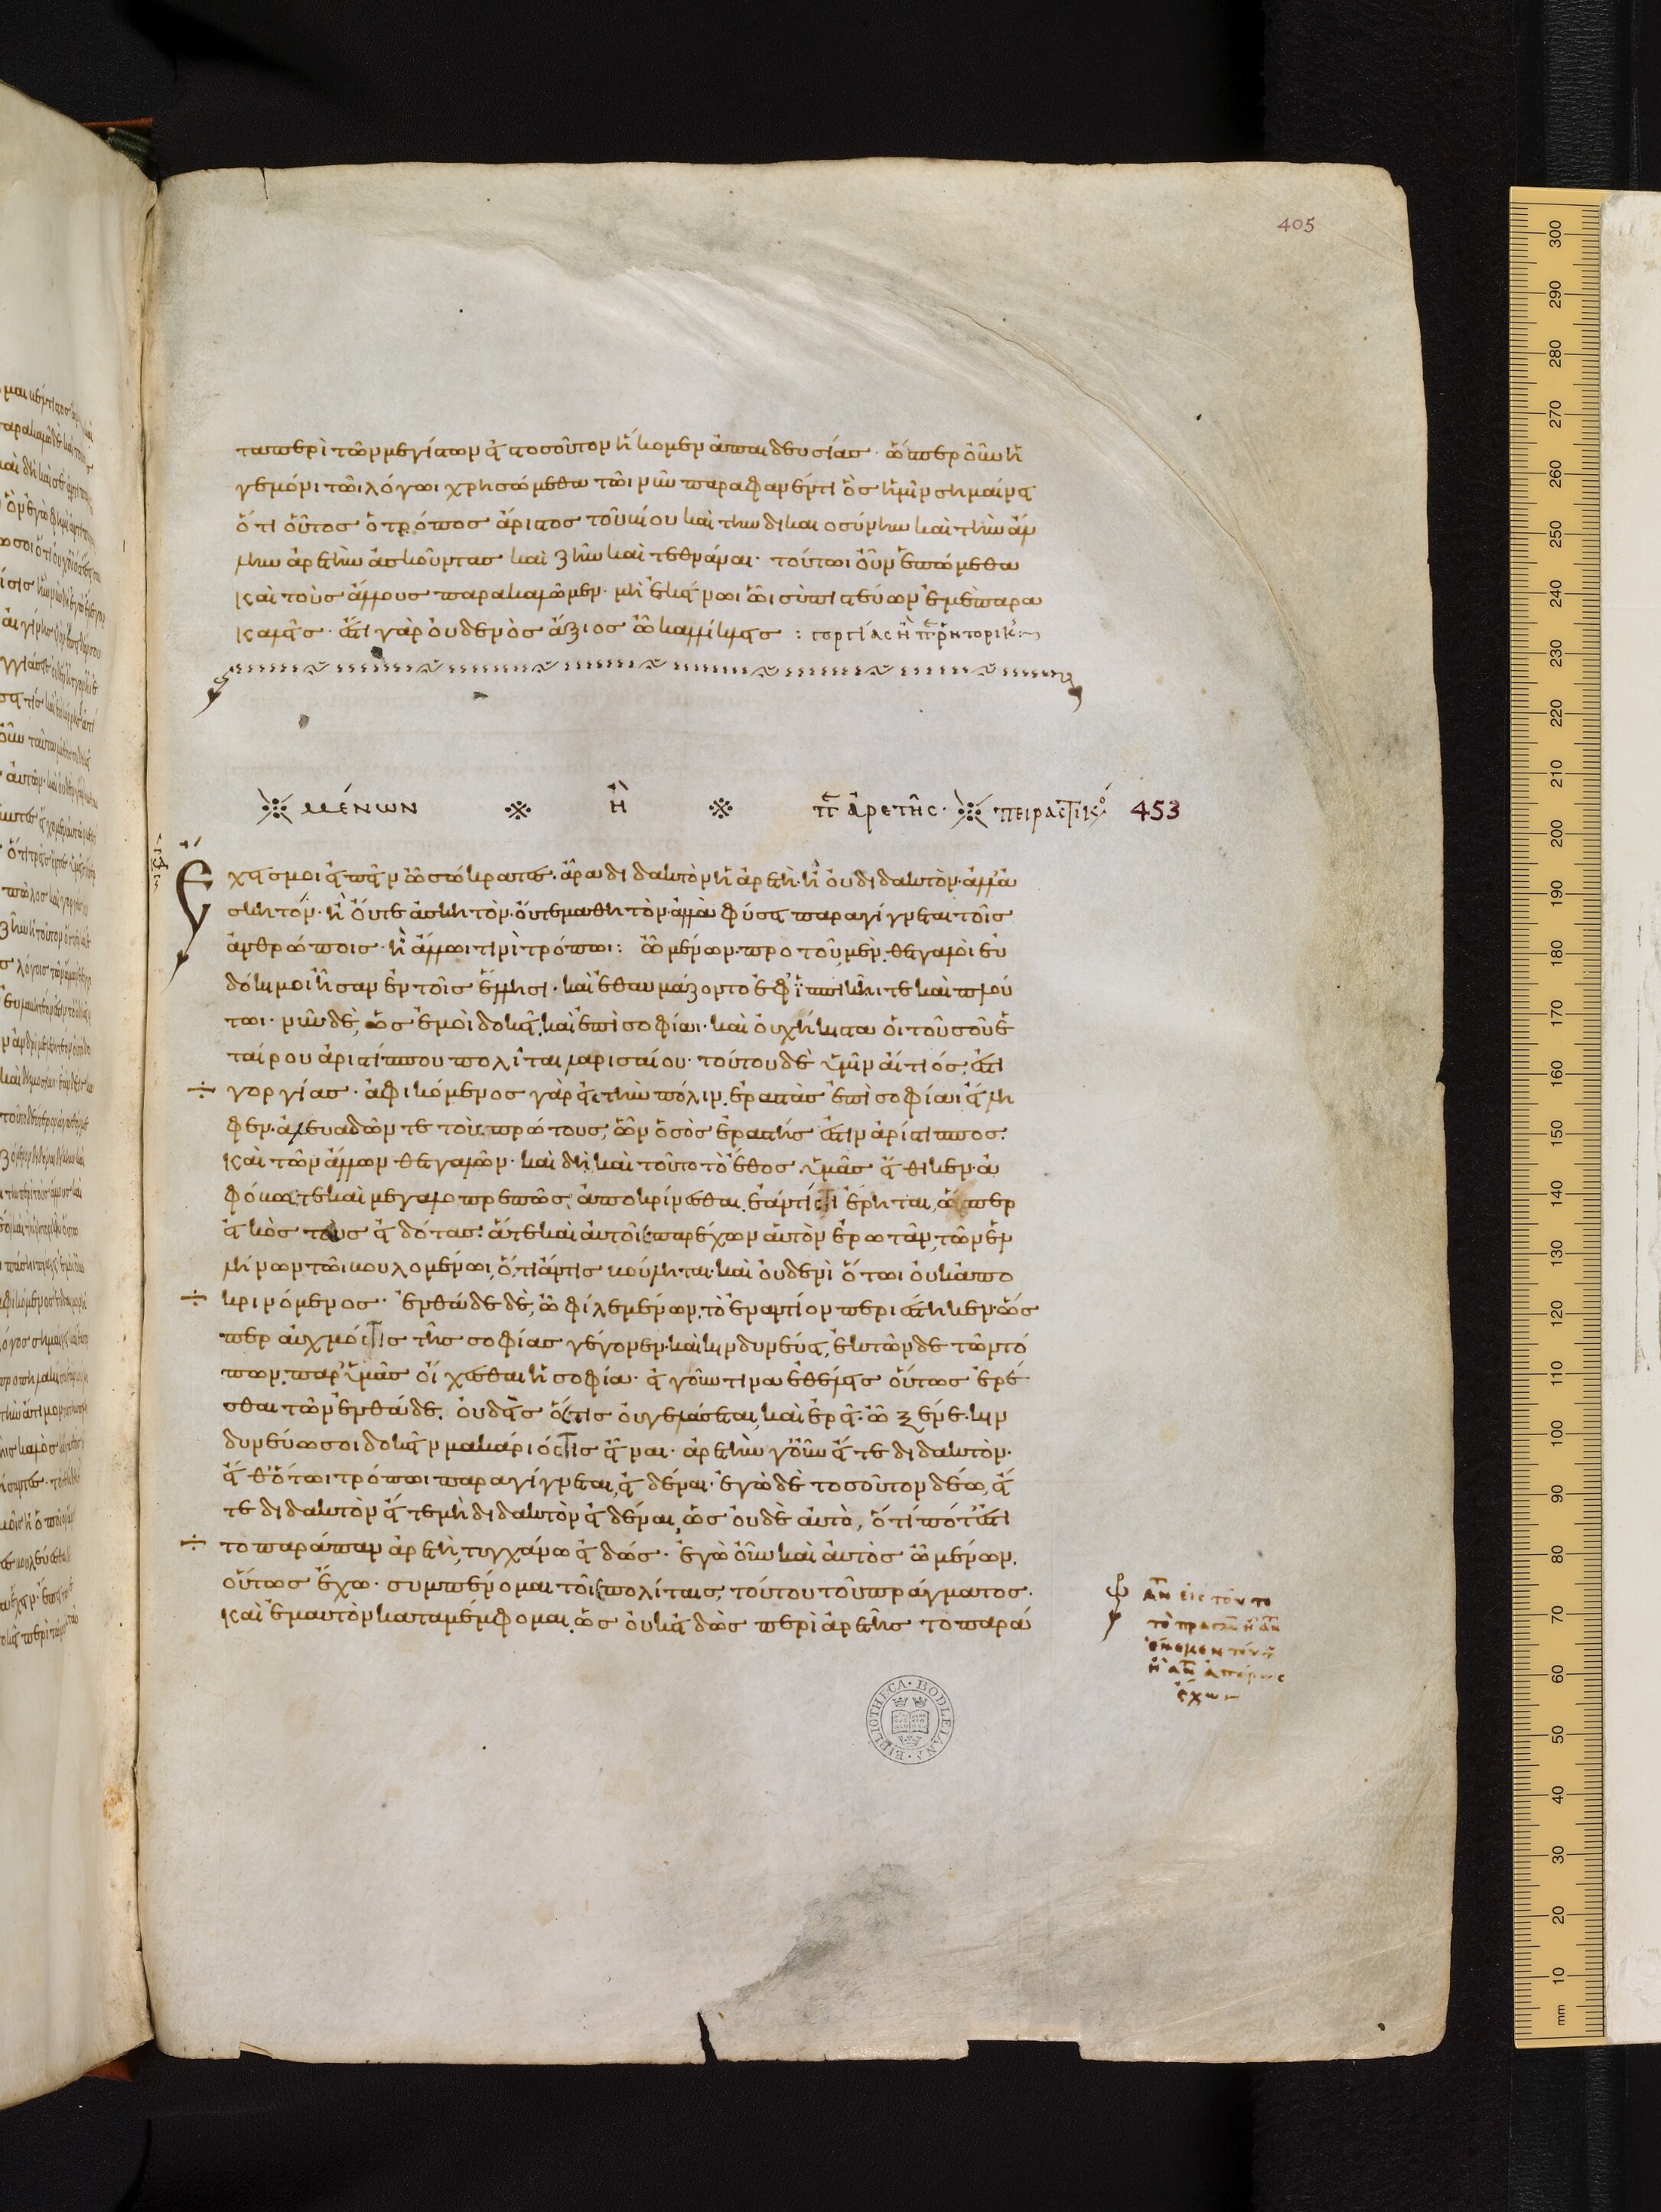 405
τα περὶ τῶν μεγίστων εἰς τοσοῦτον ἥκομεν ἀπαιδευσίας · ὥσπερ οὖν ἡ
γεμόνι τῶι λόγωι χρησώμεθα τῶι νῦν παραφανέντι ὃς ἡμῖν σημαίνει
ὅτι οὗτος ὁ τρόπος ἄριστος τοῦ βίου καὶ τὴν δικαιοσύνην καὶ τὴν ἄλ
λην ἀρετὴν ἀσκοῦντας καὶ ζῆν καὶ τεθνάναι · τούτωι οὖν ἑπώμεθα
καὶ τοὺς ἄλλους παρακαλῶμεν · μὴ ἐκείνωι ὧι σὺ πιστεύων ἐμὲ παρα
καλεῖς · ἔστι γὰρ οὐδενὸς ἄξιος ὦ καλλίκλεις : γοργίας ἢ π ῥητορικ
μένων ἢ π ἀρετῆς · πειραστικό 453
Ἔχεις μοι εἰπεῖν ὦ σώκρατες · ἆρα διδακτὸν ἡ ἀρετή · ἢ οὐ διδακτὸν · ἀλλ' ἀ
σκητόν · ἢ οὔτε ἀσκητὸν · οὔτε μαθητὸν · ἀλλὰ φύσει παραγίγνεται τοῖς
ἀνθρώποις · ἢ ἄλλωι τινὶ τρόπωι : ὦ μένων · πρὸ τοῦ μὲν θετταλοὶ εὐ
δόκιμοι ἦσαν ἐν τοῖς ἕλλησι · καὶ ἐθαυμάζοντο ἐφ' ἱππικῆι τε καὶ πλού
τωι · νῦν δὲ, ὡς ἐμοὶ δοκεῖ, καὶ ἐπὶ σοφίαι · καὶ οὐχ ἥκιστα οἱ τοῦ σοῦ ἑ
ταίρου ἀριστίππου πολῖται λαρισαίου · τούτου δὲ ὑμῖν αἴτιός ἐστι
γοργίας · ἀφικόμενος γὰρ εἰς τὴν πόλιν ἐραστὰς ἐπὶ σοφίαι εἴλη
φεν · ἀλευαδῶν τε τοὺς πρώτους, ὧν ὁ σὸς ἐραστής ἐστιν ἀρίστιππος ·
καὶ τῶν ἄλλων θετταλῶν · καὶ δὴ καὶ τοῦτο τὸ ἔθος ὑμᾶς εἴθικεν · ἀ
φόβως τε καὶ μεγαλοπρεπῶς ἀποκρίνεσθαι ἐάν τίς τι ἔρηται, ὥσπερ
εἰκὸς τοὺς εἰδότας · ἅτε καὶ αὐτὸς παρέχων αὑτὸν ἐρωτᾶν τῶν ἑλ
λήνων τῶι βουλομένωι, ὅ,τι ἄν τις βούληται · καὶ οὐδενὶ ὅτωι οὐκ ἀπο
κρινόμενος · ἐνθάδε δὲ, ὦ φίλε μένων, τὸ ἐναντίον περιέστηκεν · ὥσ
περ αὐχμός τις τῆς σοφίας γέγονεν · καὶ κινδυνεύει, ἐκ τῶνδε τῶν τό
πων παρ' ὑμᾶς οἴχεσθαι ἡ σοφία · εἰ γοῦν τινα ἐθέλεις οὕτως ἐρέ
σθαι τῶν ἐνθάδε, οὐδεὶς ὅστις οὐ γελάσεται, καὶ ἐρεῖ · ὦ ξένε · κιν
δυνεύω σοι δοκεῖν μακάριός τις εἶναι · ἀρετὴν γοῦν εἴτε διδακτὸν ·
εἴθ' ὅτωι τρόπωι παραγίγνεται, εἰδέναι · ἐγὼ δὲ τοσοῦτον δέω, εἴ
τε διδακτὸν εἴτε μὴ διδακτὸν εἰδέναι, ὡς οὐδὲ αὐτὸ, ὅτι πότ' ἐστι
τὸ παράπαν ἀρετὴ, τυγχάνω εἰδώς · ἐγὼ οὖν καὶ αὐτὸς ὦ μένων,
οὕτως ἔχω · συμπένομαι τοῖς πολίταις τούτου τοῦ πράγματος ·
καὶ ἐμαυτὸν καταμέμφομαι, ὡς οὐκ εἰδὼς περὶ ἀρετῆς τὸ παρά
εἰς τόν
ἔχων
BIBLIOTHECA · BODLEIANA ·